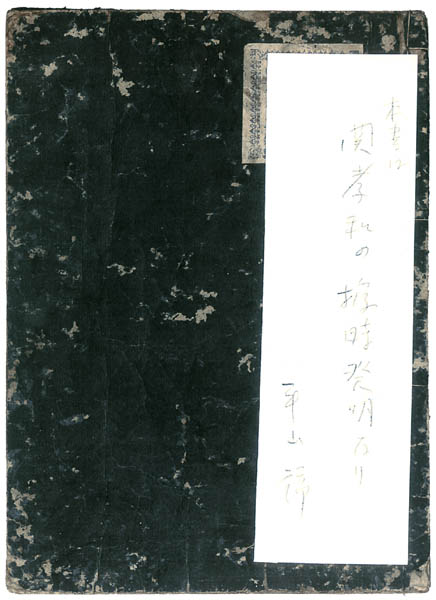 本書は
関孝和の授時発明なり
平山諦